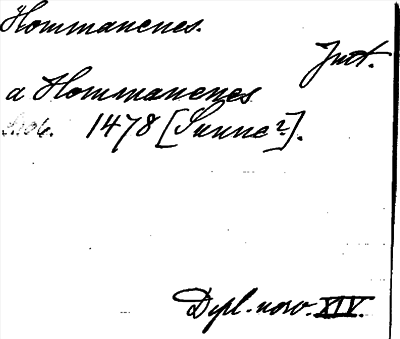 Hommanenes.
Jmt.
a Hommanenes
1478 [Sunne?].
Dipl. norv. XIV.